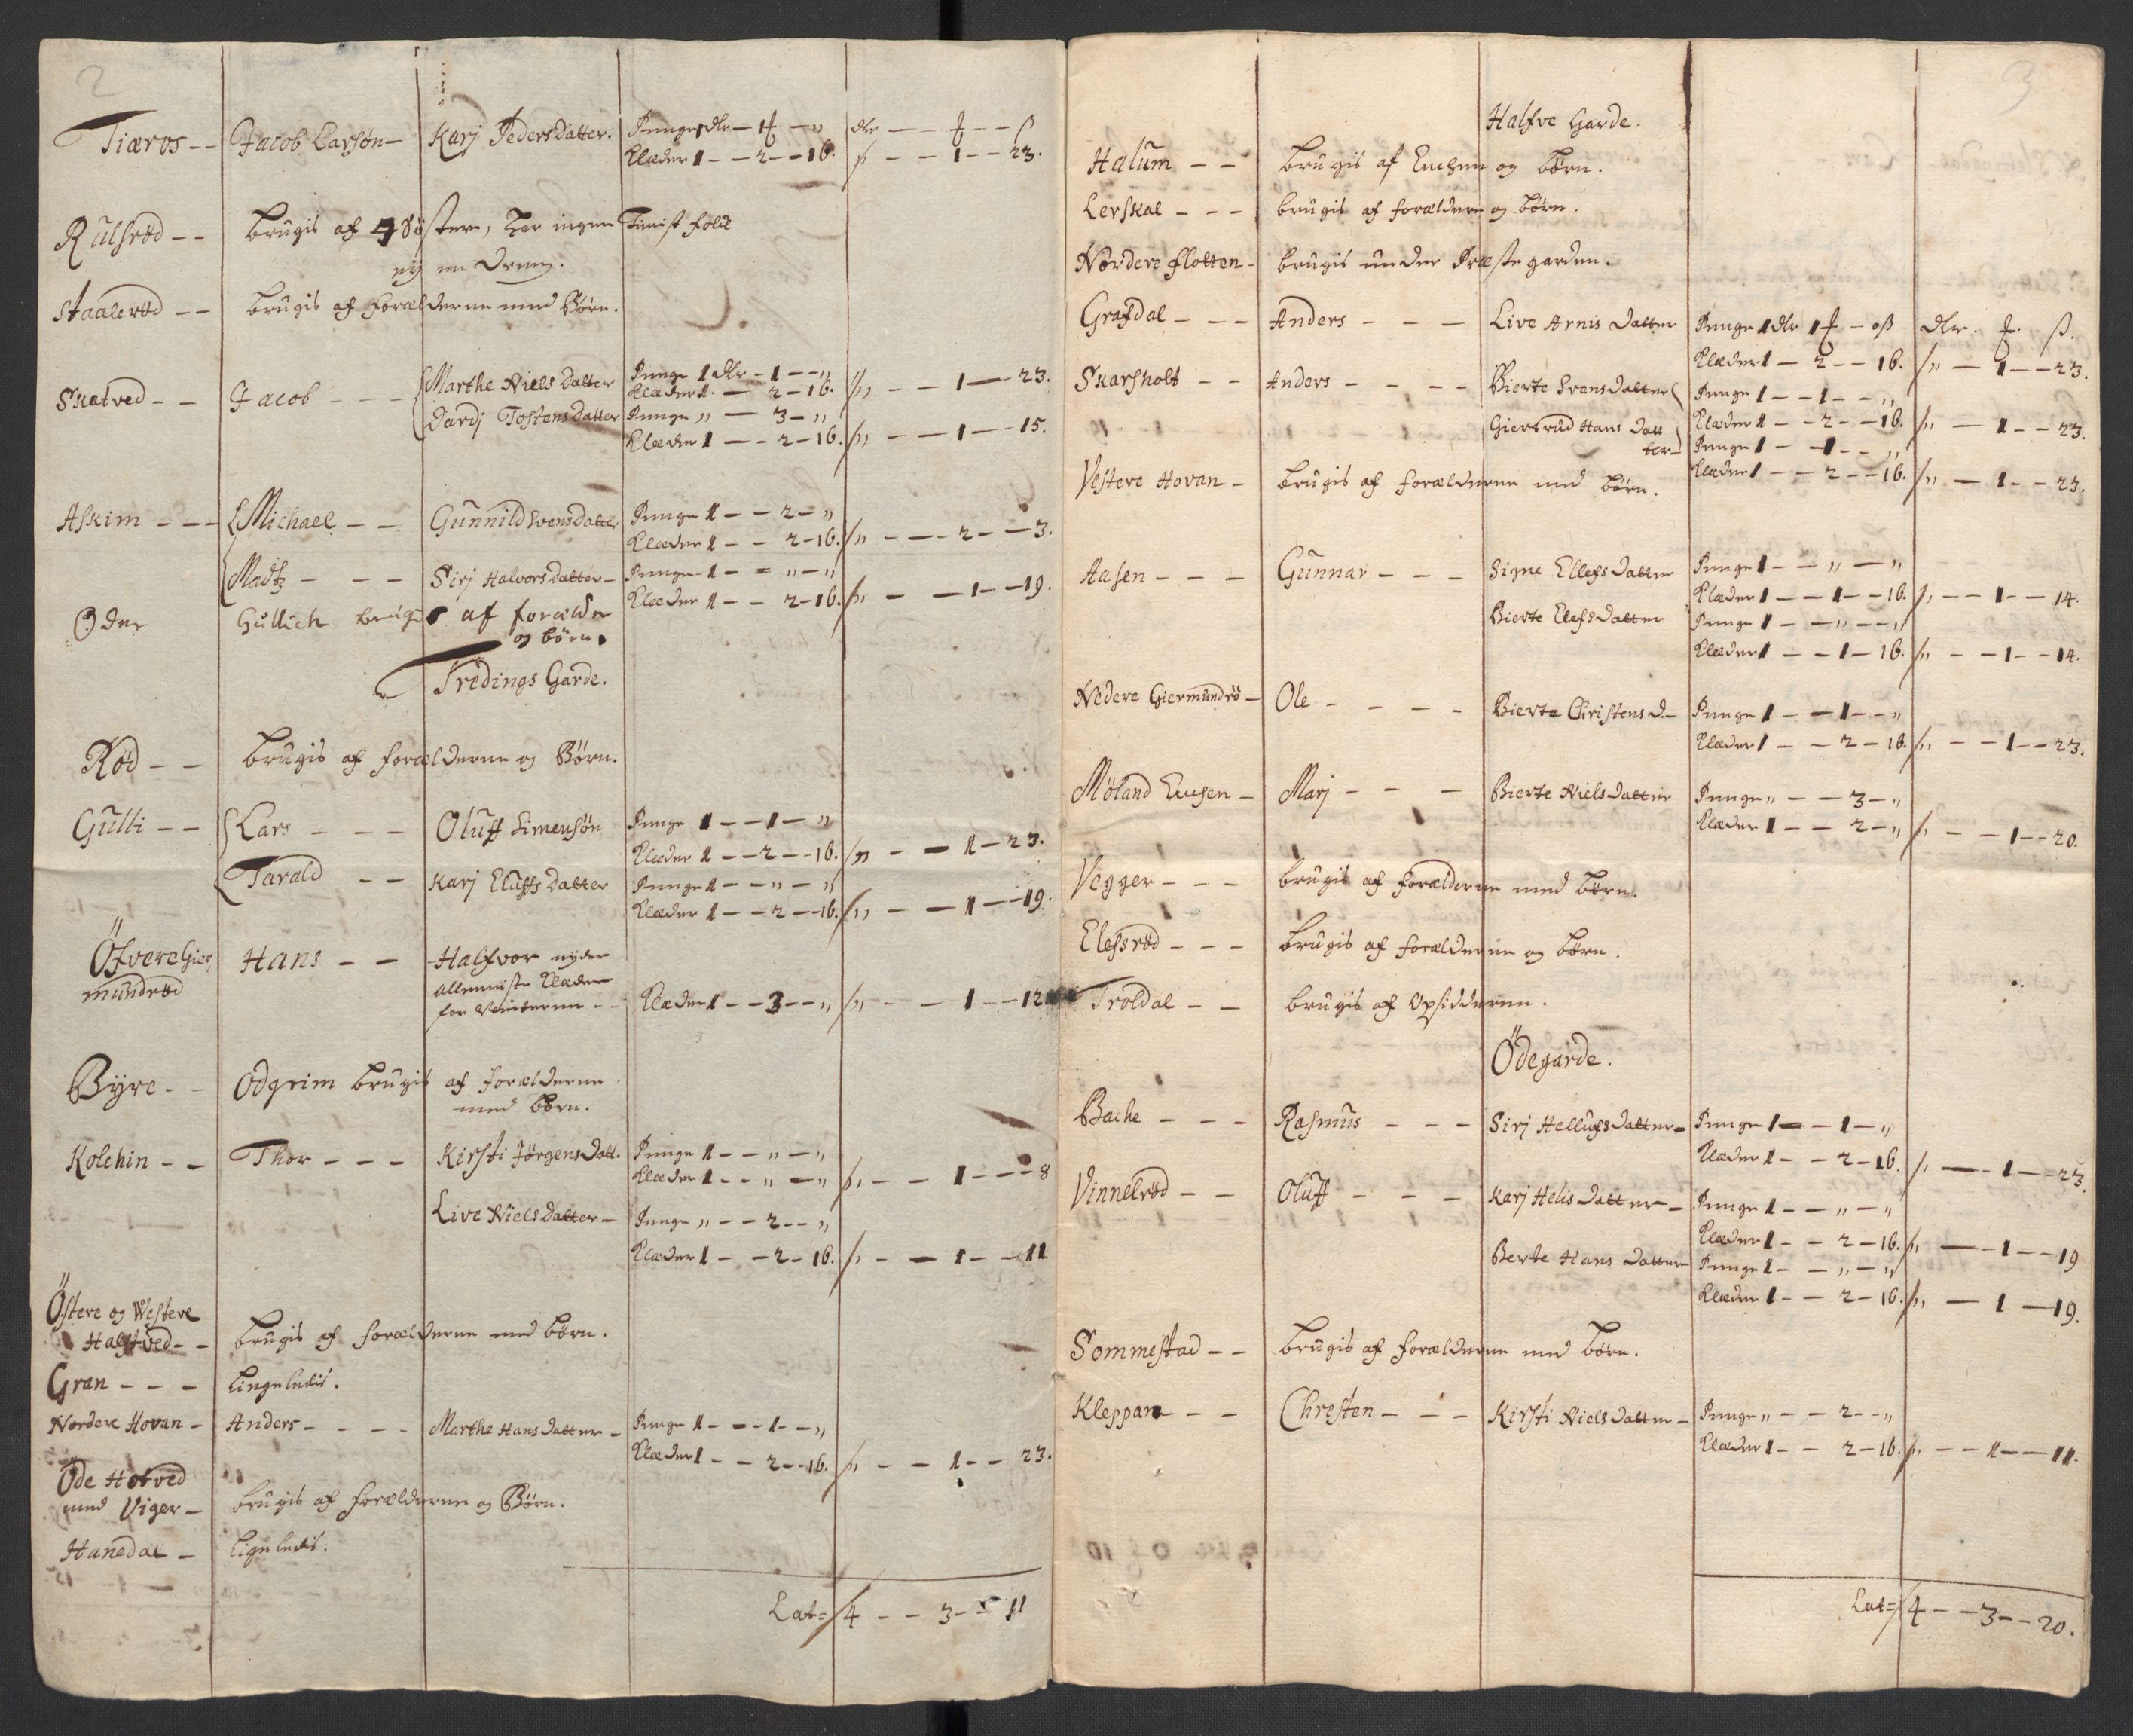 2
Tiæros -- Jacob Larsøn - Karj Pedersdatter. Penge 1 dlr - 1 ƒ - „ dlr -- ƒ -- ß
Klæder 1 -- 2 -- 16. „ -- 1 -- 23.
Rulsrød -- brugis af 4 Søstere, har ingen Tienist folck
ey en Dreng.
Staalerød -- brugis af forælderne med Børn.
Skatved -- Jacob --- Marthe Nielsdatter Penge 1 dlr - 1 - „
Klæder 1 - 2 - 16. „ -- 1 -- 23.
Dardj Tostensdatter Penge „ - 3 - „
Klæder 1 -- 2 - 16. „ -- 1 -- 15.
Askim --- Michael -- Gunnild Svensdatter Penge 1 -- 2 - „
Klæder 1 -- 2 - 16. „ -- 2 -- 3.
Madtz --- Sirj Halvorsdatter - Penge 1 - „ - „
Klæder 1 -- 2 - 16. „ -- 1 -- 19.
Oder Gullich brugis af forælder
og børn.
Tredings Garde.
Rød -- brugis af forælderne og Børn.
Gulli -- Lars --- Oluff Simensøn Penge 1 -- 1 - „
Klæder 1 -- 2 -- 16. „ -- 1 - 23.
Tarald -- Karj Eluffsdatter Penge 1 -- „ - „
Klæder 1 -- 2 -- 16. „ -- 1 -- 19.
Öfvere Gier
mundrød Hans -- Halfvor nyder
allenniste Klæder
for tienesten -- Klæder 1 -- 3 -- „ „ -- 1 -- 12
Byre -- Odgrim brugis af forælderne
med børn.
Kolchin -- Thor --- Kirsti Jörgens Datt. Penge 1 -- „ - „
Klæder 1 -- „ - „ „ -- 1 --- 8
Live Nielsdatter - Penge „ -- 2 -- „
Klæder 1 -- 2 - 16. „ -- 1 -- 11.
Östere og Westere
Halfved -- brugis af forælderne med børn.
Gran --- Lingeledis.
Nordere Hovan - Anders ---- Marthe Hansdatter - Penge 1 -- 1 -- „
Klæder 1 -- 2 -- 16. „ -- 1 -- 23.
Öde Hotved
med Viger - brugis af forælderne og Børn.
Hanedal - Ligeledis.
Lat= 4 -- 3 -- 11
3
Halfve Garde.
Halum -- brugis af Enchen og børn.
Lerskal --- brugis af forældere og børn.
Nordere flotten - brugis under Præstegarden.
Grafdal --- Anders --- Live Arnis datter Penge 1 dlr 1 ƒ - 0 ß dlr. ƒ. ß.
Klæder 1 - 2 -- 16. „ - 1 -- 23.
Skarsholt -- Anders ---- Bierte Svensdatter Penge 1 -- 1 -- „
Klæder 1 -- 2 -- 16. „ - 1 -- 23.
Giertrud Hans Datt
ter - Penge 1 -- 1 -- „
Klæder 1 -- 2 -- 16. „ - 1 -- 23.
Vestere Hovan - brugis af forælderne med børn.
Aasen --- Gunnar --- Signe Ellefsdatter Penge 1 -- „ - „
Klæder 1 -- 1 -- 16. „ -- 1 -- 14.
Bierte Elefsdatter Penge 1 -- „ -- „
Klæder 1 -- 1 - 16. „ -- 1 -- 14.
Nedere Giermundrö - Ole ---- Bierte Christensd - Penge 1 -- 1 -- „
Klæder 1 -- 2 - 16. „ -- 1 -- 23.
Möland Enchen - Marj --- Bierte Nielsdatter Penge „ -- 3 - „
Klæder 1 -- 2 - „ „ -- 1 -- 20.
Vegger --- brugis af forælderne med børn.
Elefsrød --- brugis af forælderne og børn.
Troldal -- brugis af Opsidderen.
Ödegarde.
Bache --- Rasmus --- Sirj Hellufsdatter - Penge 1 -- 1 - „
Klæder 1 -- 2 - 16. „ -- 1 -- 23.
Vinnelrød -- Oluff --- Karj Helisdatter - Penge 1 -- „ - „
Klæder 1 -- 2 - 16. „ -- 1 -- 19
Berte Hansdatter Penge 1 -- „ - „
Klæder 1 -- 2 - 16. „ - 1 - 19.
Sommestad -- brugis af forælderne med børn.
Kleppan -- Chresten --- Kirsti Nielsdatter - Penge „ -- 2 -- „
Klæder 1 -- 2 - 16. „ -- 1 -- 11.
Lat= 4 -- 3 -- 20.